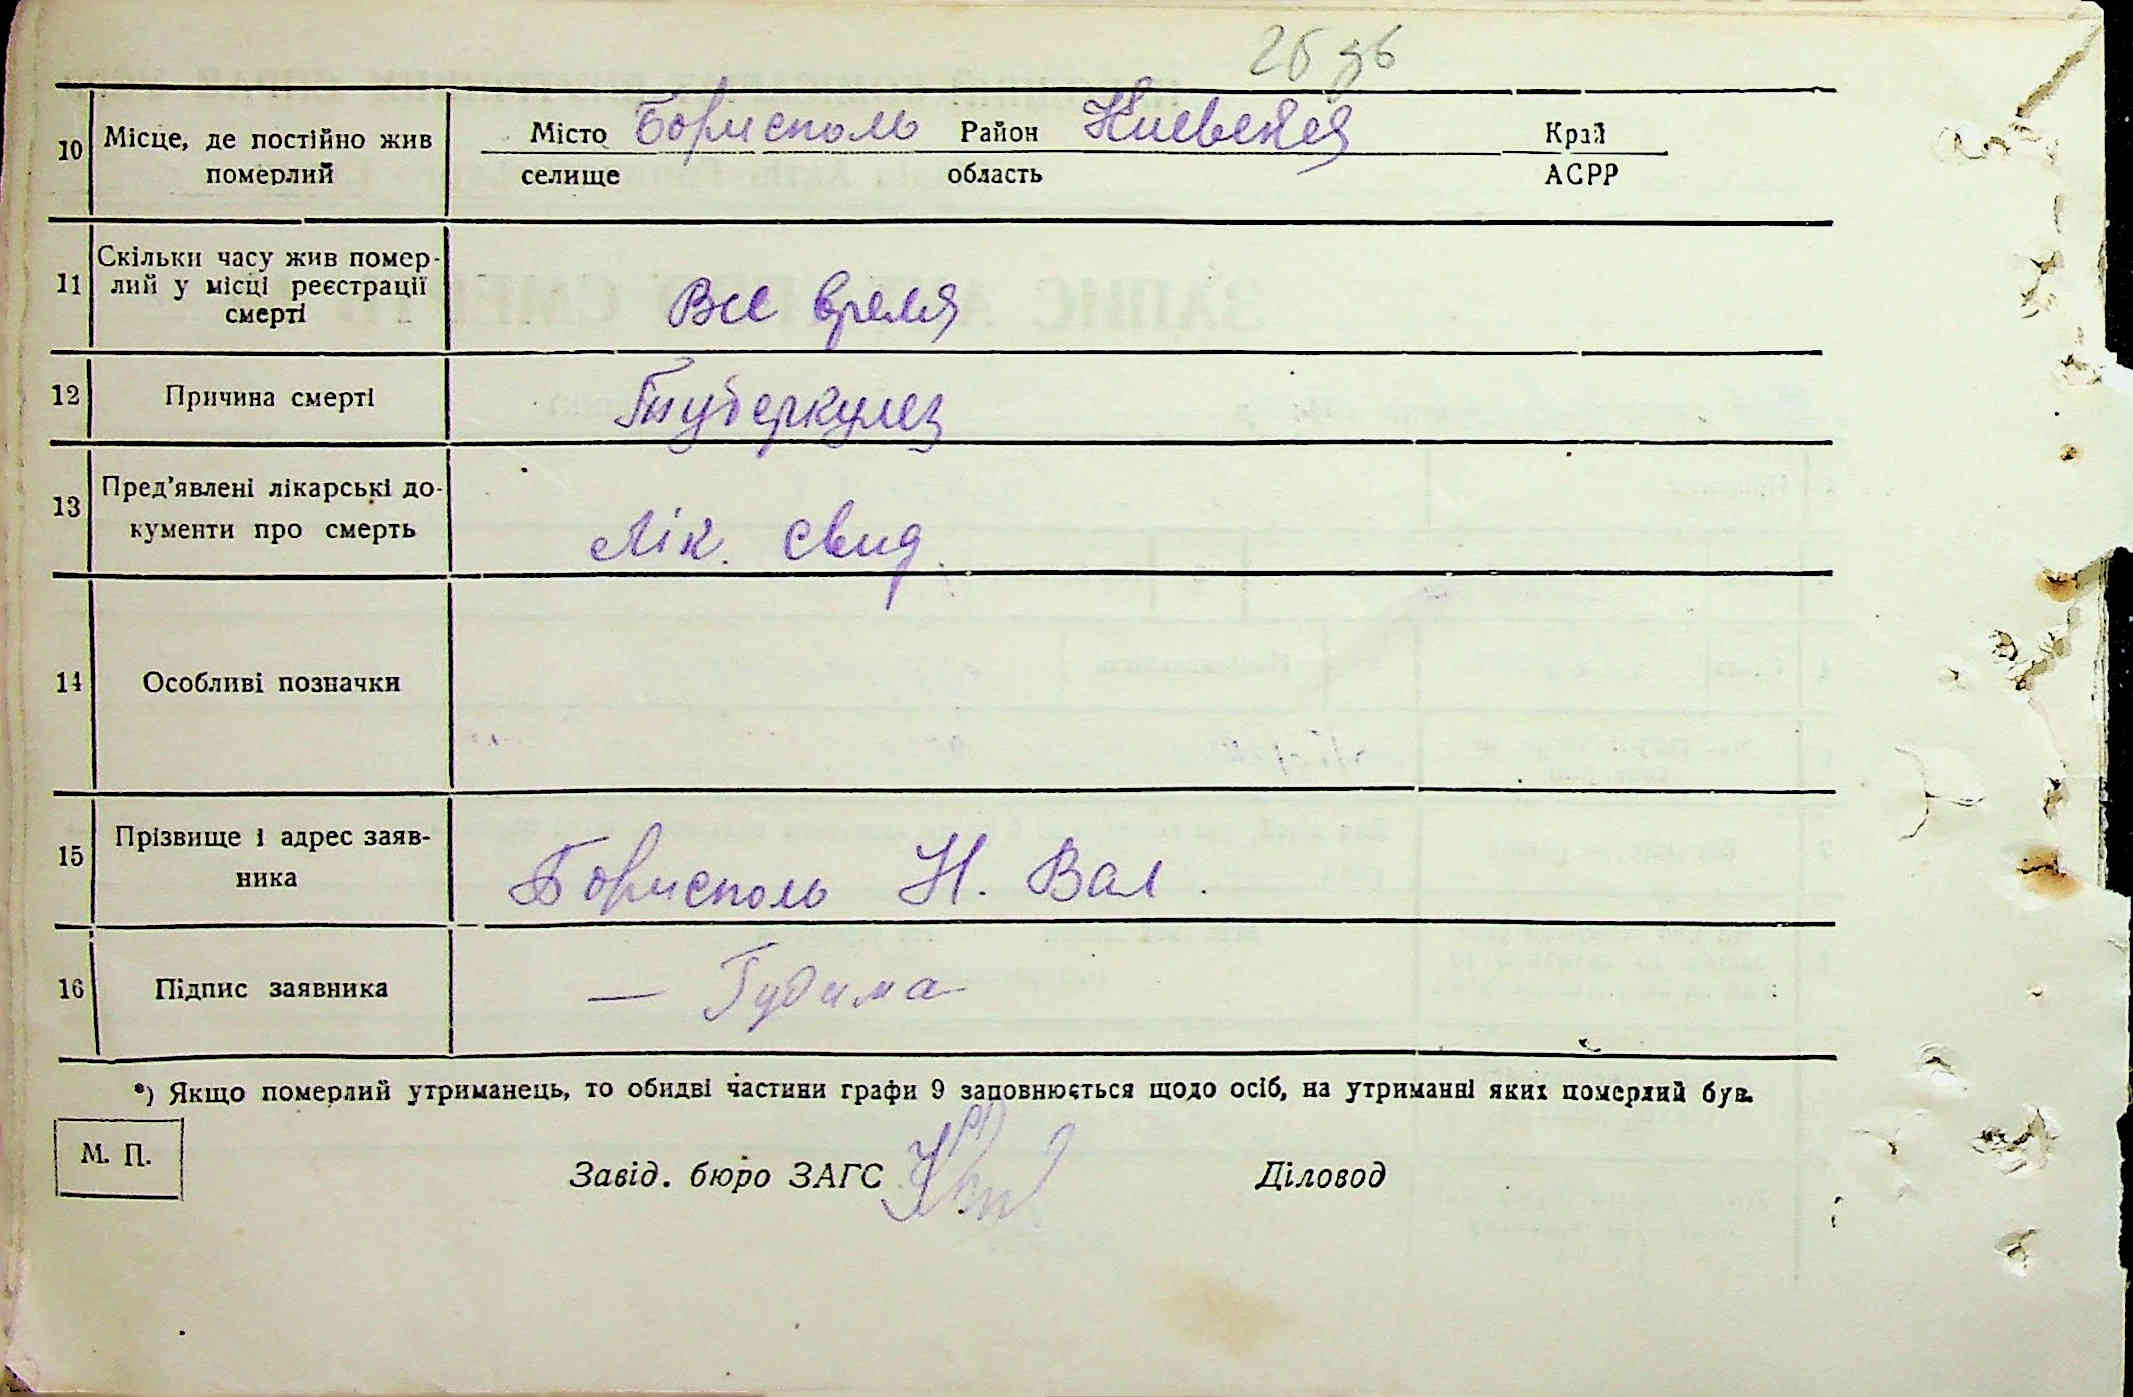 26 зв
10 Місце, де постійно жив померлий
Місто Борисполь Район Киевская Край
селище область АСРР
11 Скільки часу жив помер-
лий у місці реєстрації
смерті
Все время
12 Причина смерті Туберкулез
13 Пред'явлені лікарські до-
кументи про смерть
Лік. свид.
14 Особливі позначки
15 Прізвище і адрес заяв-
ника
Борисполь Н. Вал.
16 Підпис заявника — Гудима
*) Якщо померлий утриманець, то обидві частини графи 9 заповнюється щодо осіб, на утриманні яких померлий був.
М. П.
Завід. бюро ЗАГС Діловод